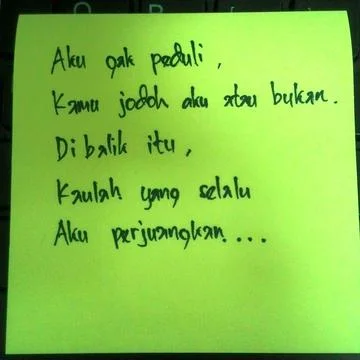 Aku gak peduli,
Kamu jodoh aku atau bukan.
Di balik itu,
Kaulah yang selalu
Aku perjuangkan...